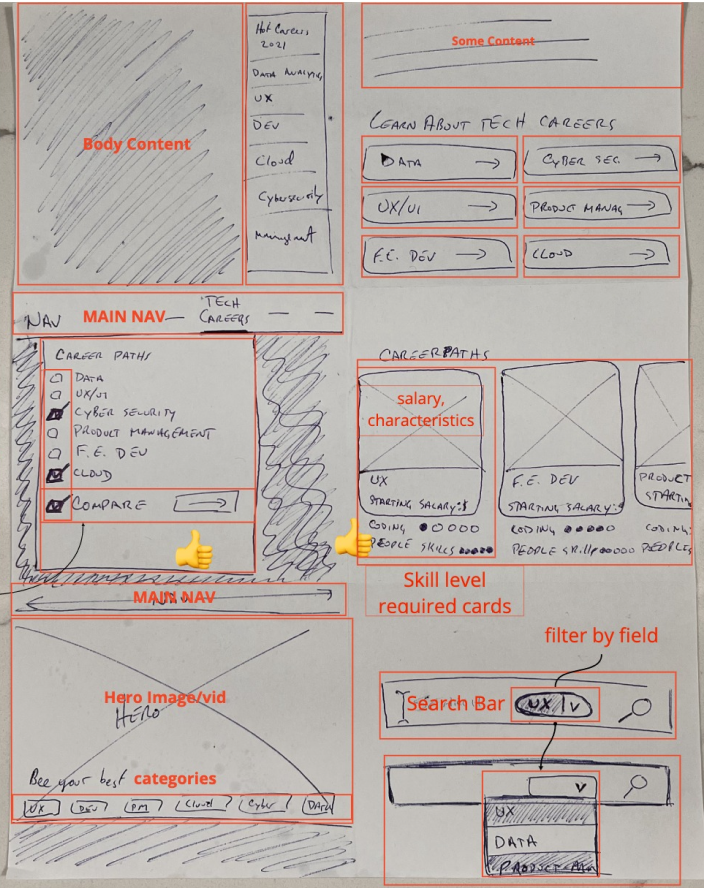 Hot Careers
2021
DATA ANALYTICS
UX
DEV
Cloud
Cybersecurity
Body Content
Some Content
LEARN ABOUT TECH CAREERS
DATA
CYBER SEC.
UX/UI
PRODUCT MANAG
F.E. DEV
CLOUD
NAV
MAIN NAV
TECH
CAREERS
CAREER PATHS
DATA
UX/UI
CYBER SECURITY
PRODUCT MANAGEMENT
F.E. DEV
CLOUD
COMPARE
CAREER PATHS
salary,
characteristics
UX
STARTING SALARY:$
CODING
PEOPLE SKILLS
F.E. DEV
STARTING SALARY:$
CODING
PEOPLE SKILL
PRODUCT
STARTIN
CODING:
PEOPLE
Skill level
required cards
MAIN NAV
NAV
Hero Image/vid
HERO
Bee your best
categories
UX
DEV
PM
Cloud
Cyber
DATA
filter by field
Search Bar
UX
V
V
UX
DATA
PRODUCT MAN